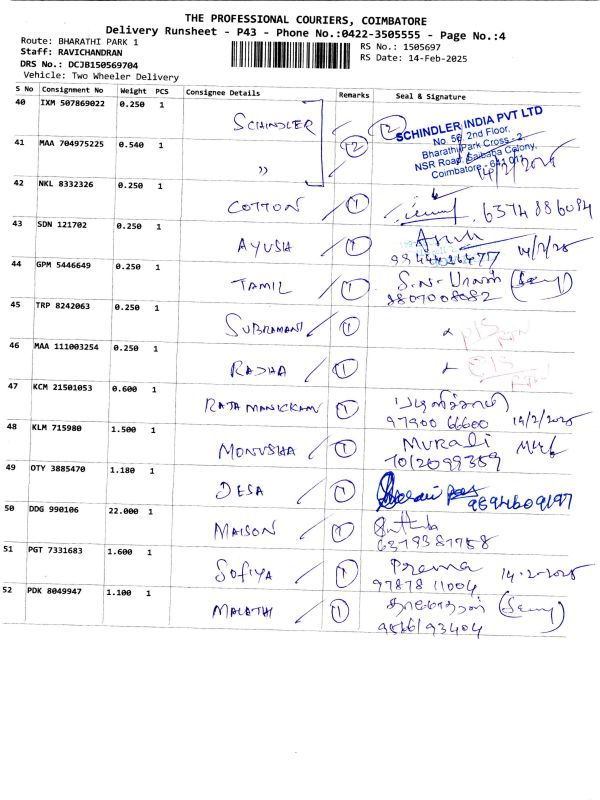 THE PROFESSIONAL COURIERS, COIMBATORE
Delivery Runsheet - P43 - Phone No.:0422-3505555 - Page No.:4
Route: BHARATHI PARK 1
RS No.: 1505697
Staff: RAVICHANDRAN
RS Date: 14-Feb-2025
DRS No.: DCJB150569704
Vehicle: Two Wheeler Delivery
S No Consignment No Weight PCS Consignee Details Remarks Seal & Signature
40 IXM 507869022 0.250 1 SCHINDLER 2
SCHINDLER INDIA PVT LTD
No. 56, 2nd Floor,
Bharathi Park Cross - 2,
NSR Road, Saibaba Colony,
Coimbatore - 641 011
41 MAA 704975225 0.540 1 " 2 14/2/2025
42 NKL 8332326 0.250 1 COTTON 1 6374886084
43 SDN 121702 0.250 1 AYUSH 1
44 GPM 5446649 0.250 1 TAMIL 1
8807008082
45 TRP 8242063 0.250 1 SUBRAMANI 1
46 MAA 111003254 0.250 1 RADHA 1
47 KCM 21501053 0.600 1 RAJAMANICKAM 1
97900 66600 14/2/2025
48 KLM 715980 1.500 1 MONUSHA 1 Murali
7012099359
49 OTY 3885470 1.180 1 DESA 1 9894609197
50 DDG 990106 22.000 1 MAISON 1
6379387758
51 PGT 7331683 1.600 1 SOFIYA 1 Prema
97878 11004 14-2-2025
52 PDK 8049947 1.100 1 MALATHI 1
95661 93404